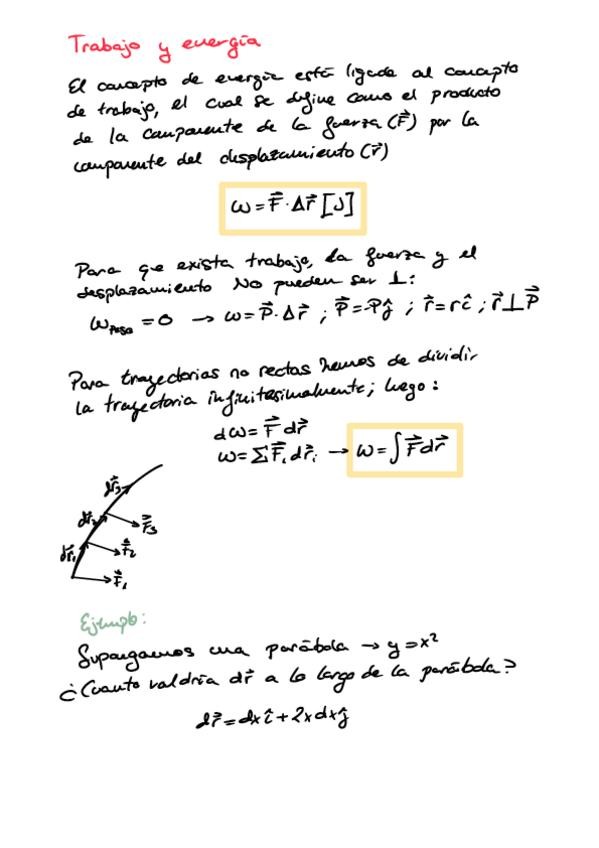 Trabajo y energía
El concepto de energía está ligado al concepto
de trabajo, el cual se define como el producto
de la componente de la fuerza (F⃗) por la
componente del desplazamiento (r⃗)
ω = F⃗ · Δr⃗ [J]
Para que exista trabajo, la fuerza y el
desplazamiento No pueden ser ⊥:
ω_Peso = 0 → ω = P⃗ · Δr⃗ ; P⃗ = -Pĵ ; r⃗ = rî ; r⃗ ⊥ P⃗
Para trayectorias no rectas hemos de dividir
la trayectoria infinitesimalmente; luego:
dω = F⃗ dr⃗
ω = ΣF⃗ᵢ dr⃗ᵢ → ω = ∫F⃗dr⃗
dr⃗₃
dr⃗₂ F⃗₃
dr⃗₁ F⃗₂
F⃗₁
Ejemplo:
Supongamos una parábola → y = x²
¿Cuanto valdría dr⃗ a lo largo de la parábola?
dr⃗ = dx î + 2x dx ĵ